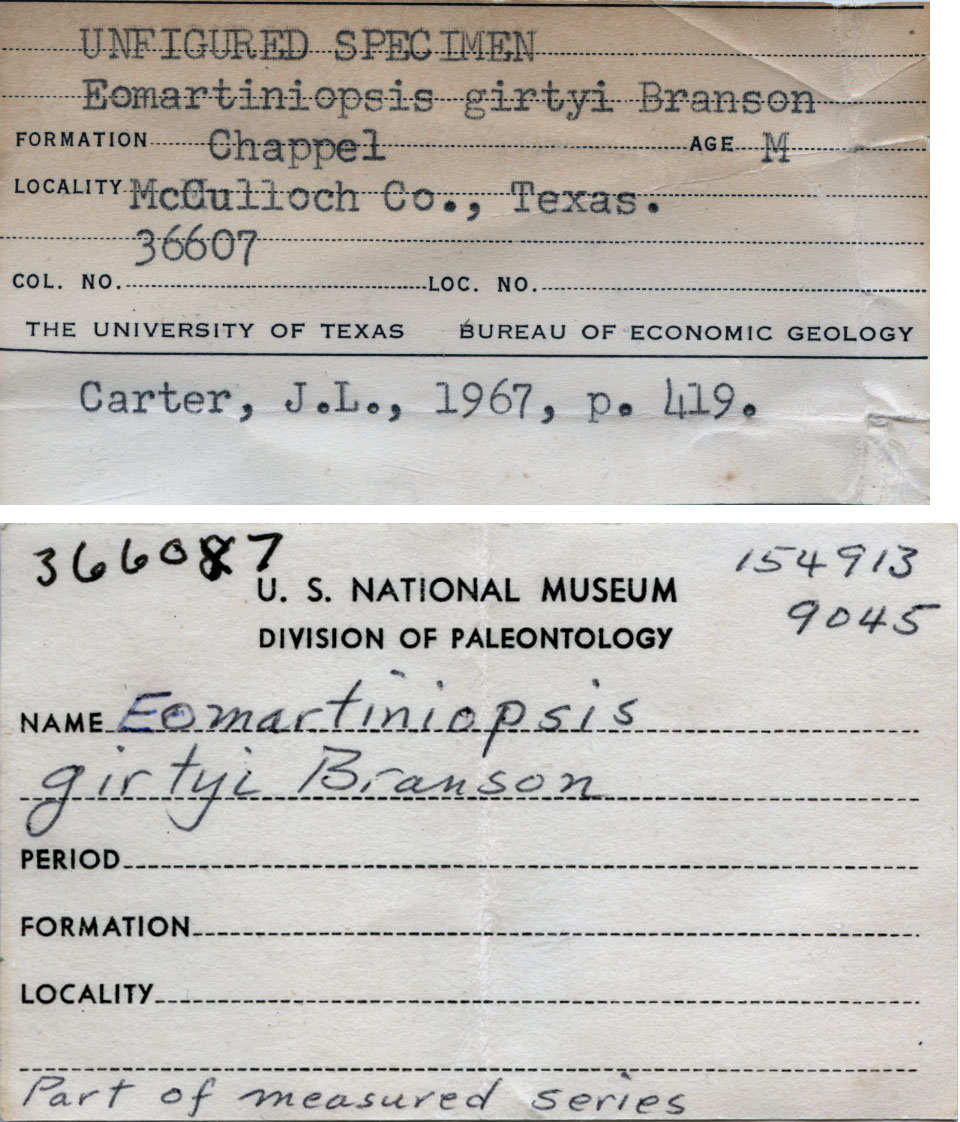 UNFIGURED SPECIMEN
Eomartiniopsis girtyi Branson
FORMATION Chappel AGE M
LOCALITY McCulloch Co., Texas.
36607
COL. NO. LOC. NO.
THE UNIVERSITY OF TEXAS BUREAU OF ECONOMIC GEOLOGY
Carter, J.L., 1967, p. 419.
36607 154913
U. S. NATIONAL MUSEUM 9045
DIVISION OF PALEONTOLOGY
NAME Eomartiniopsis
girtyi Branson
PERIOD
FORMATION
LOCALITY
Part of measured series